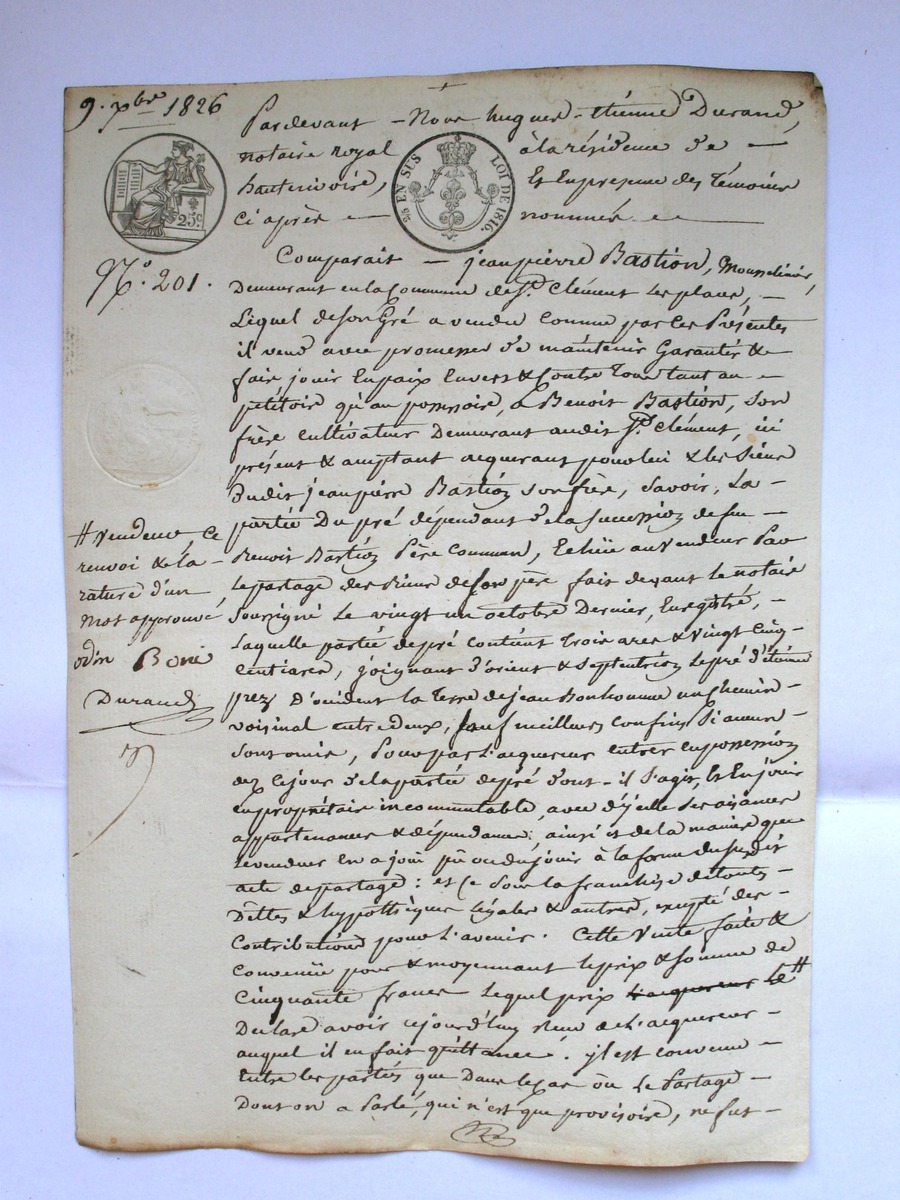 9. xbre 1826
Pardevant - Nous hugues - étienne Durand,
notaire royal à la résidence de -
hauterivoire, Et En presence des témoins
ci après - nommés. -
25 EN SUS LOI DE 1816.
25 c.
N.° 201.
Comparait - jeanpierre Bastion, Mousselinier,
Demeurant en la Commune de St. Clément les places, -
Lequel de son Gré a vendu comme par les Présentes
il vend avec promesses de maintenir Garantir &
faire jouir En paix Envers & Contre Tous tant au -
petitoire qu'au possessoire, à Benoit Bastion, son
frère cultivateur Demeurant audit St. Clément, ici
présent & acceptant acquerant pour lui & les Siens
Dudit jeanpierre Bastion son frère, Savoir, La -
partie Du pré dépendant de la succession de feu -
Benoit Bastion Père Commun, Echüe au Vendeur Par
le partage des Biens de son père fait devant le notaire
Soussigné Le vingt un octobre Dernier, Enregistré, -
Laquelle partie de pré contient trois ares & vingt Cinq
Centiares, joignant d'orient & Septentrion le pré d'étienne
prez D'occident la Terre de jean Bonhomme un chemin -
voisinal entre deux, sauf meilleurs confins Si aucuns
sont omis, Pour par L'acquereur entrer en possession
dez Ce jour de la partie de pré dont - il S'agit, Et En jouir
en propriétaire incommutable, avec d'jcelle Ses aisances
appartenances & dépendances, ainsi & de la maniere que
le vendeur En a joüi pû ou du joüir à la forme du susdit
acte de partage : et Ce Sous la franchise de toutes -
Dettes & hypothèques légales & autres, excepté des -
Contributions pour L'avenir. Cette Vente faite &
Convenüe pour & moyennant le prix & somme de
Cinquante francs lequel prix Le #
Declare avoir cejourd'huy reçu de L'acquereur -
auquel il en fait quittance. jl est convenu -
Entre les parties que Dans le cas ou Le Partage -
Dont on a Parlé, qui n'est que provisoire, ne fut -
# vendeur, Ce
renvoi & la -
rature d'un
Mot approuvé
Durand